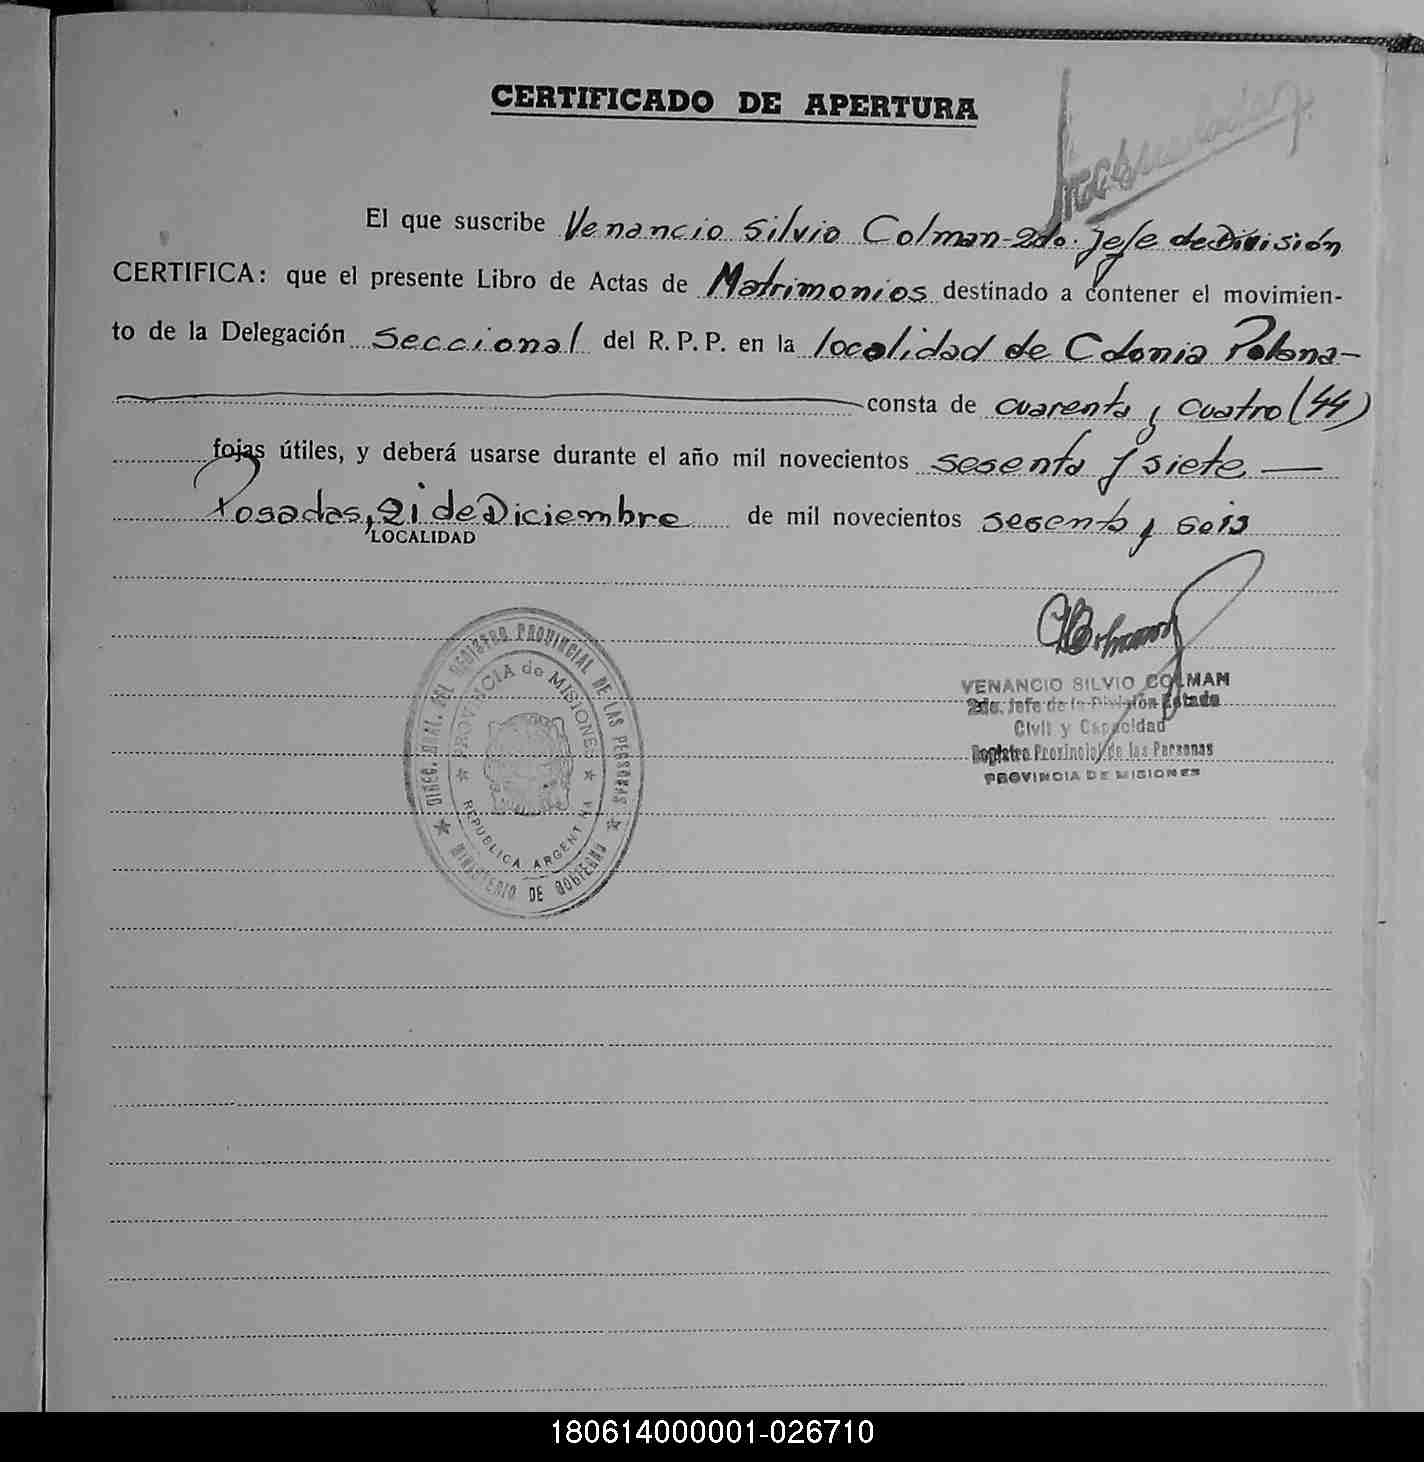 CERTIFICADO DE APERTURA
El que suscribe Venancio Silvio Colman - 2do. Jefe de División
CERTIFICA: que el presente Libro de Actas de Matrimonios destinado a contener el movimien-
to de la Delegación Seccional del R. P. P. en la localidad de Colonia Polana-
consta de cuarenta y cuatro (44)
fojas útiles, y deberá usarse durante el año mil novecientos sesenta y siete —
Posadas, 21 de Diciembre de mil novecientos sesenta y seis
LOCALIDAD
VENANCIO SILVIO COLMAN
2do. Jefe de la División Estado
Civil y Capacidad
Registro Provincial de las Personas
PROVINCIA DE MISIONES
DIREC. GRAL. DEL REGISTRO PROVINCIAL DE LAS PERSONAS
MINISTERIO DE GOBIERNO
PROVINCIA de MISIONES
REPUBLICA ARGENTINA
180614000001-026710